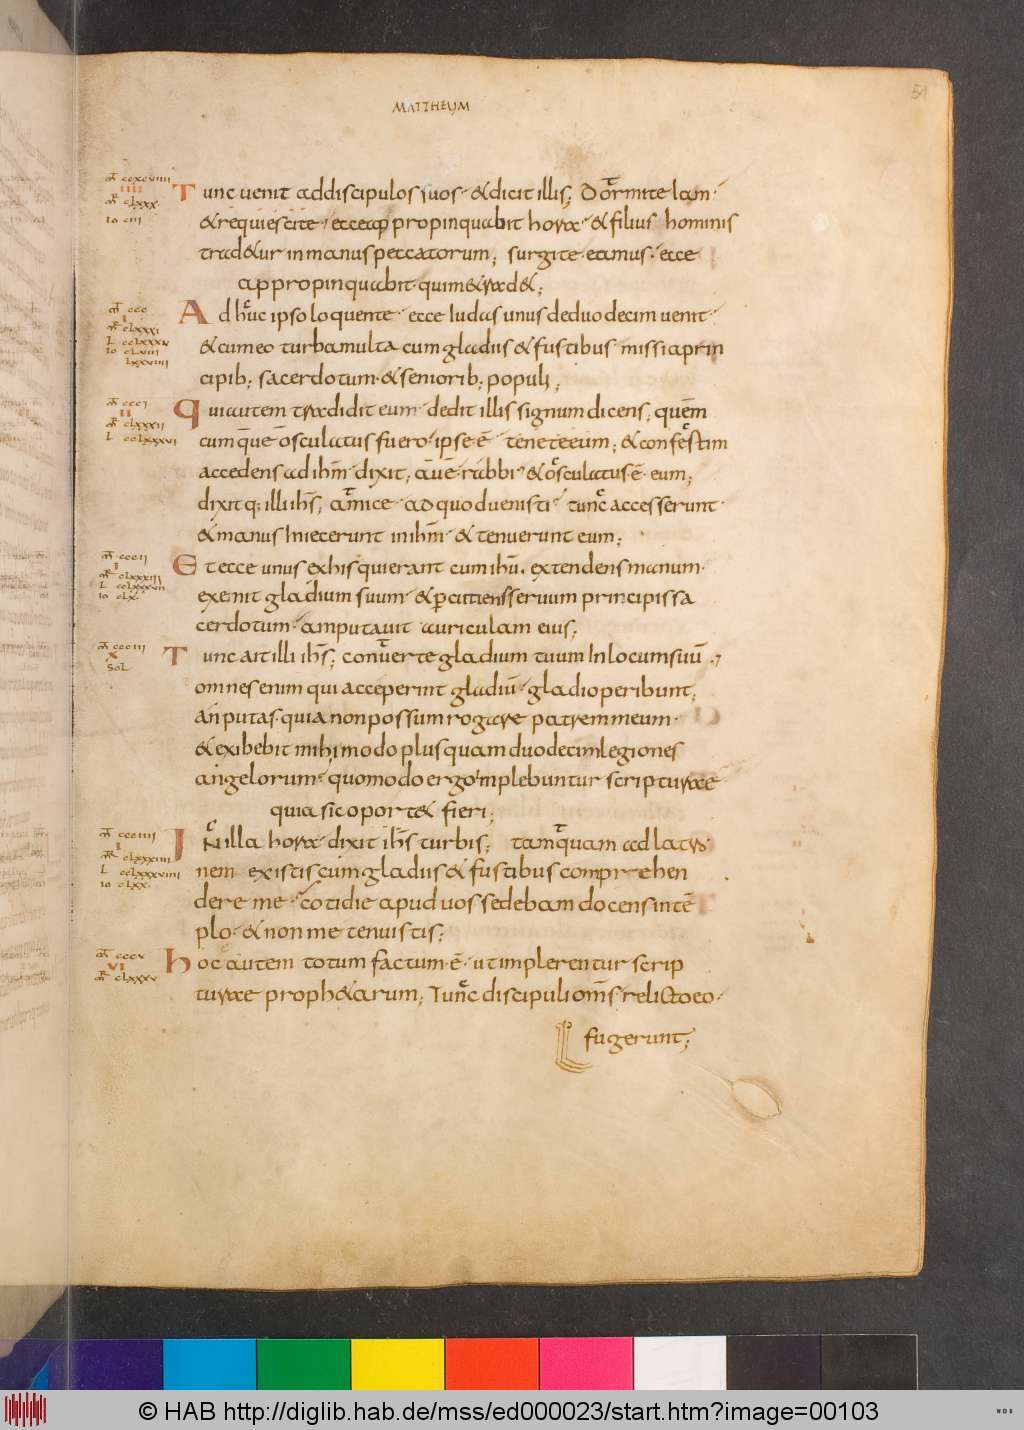 MATTHEUM
51
Tunc uenit addiscipulos suos · & dicit illis; Dormite iam ·
& requiescite · ecce appropinquabit hora · & filius hominis
trad&ur in manus peccatorum; surgite · eamus · ecce
appropinquabit · qui me & trad&;
Ad huc ipso loquente · ecce Iudas unus de duodecim uenit ·
& cum eo turba multa cum gladiis & fustibus · missi a prin
cipib; sacerdotum · & seniorib; populi;
Qui autem tradidit eum · dedit illis signum dicens; quem
cumque osculatus fuero · ipse ē · tenete eum; & confestim
accedens ad ihm̄ · dixit; aue rabbi · & osculatus ē · eum;
dixitq; illi ih̄s; amice · ad quod uenisti · tunc accesserunt ·
& manus Iniecerunt in ihm̄ · & tenuerunt eum;
Et ecce unus ex his qui erant cum ihū · extendens manum ·
exemit gladium suum · & percutiens seruum principis sa
cerdotum · amputauit auriculam eius;
Tunc ait illi ih̄s; conuerte gladium tuum In locum suū ·
omnes enim qui acceperint gladiū · gladio peribunt;
an putas · quia non possum rogare patrem meum ·
& exibebit mihi modo plus quam duodecim legiones
angelorum · quomodo ergo implebuntur scripturae
quia sic oport& fieri;
In illa hora dixit ih̄s turbis; tamquam ad latro
nem existis cum gladiis & fustibus comprehen
dere me · cotidie apud uos sedebam docens in tē
plo · & non me tenuistis;
Hoc autem totum factum · ē · ut implerentur scrip
turae proph&arum; Tunc discipuli om̄s · relicto eo ·
fugerunt;
© HAB http://diglib.hab.de/mss/ed000023/start.htm?image=00103